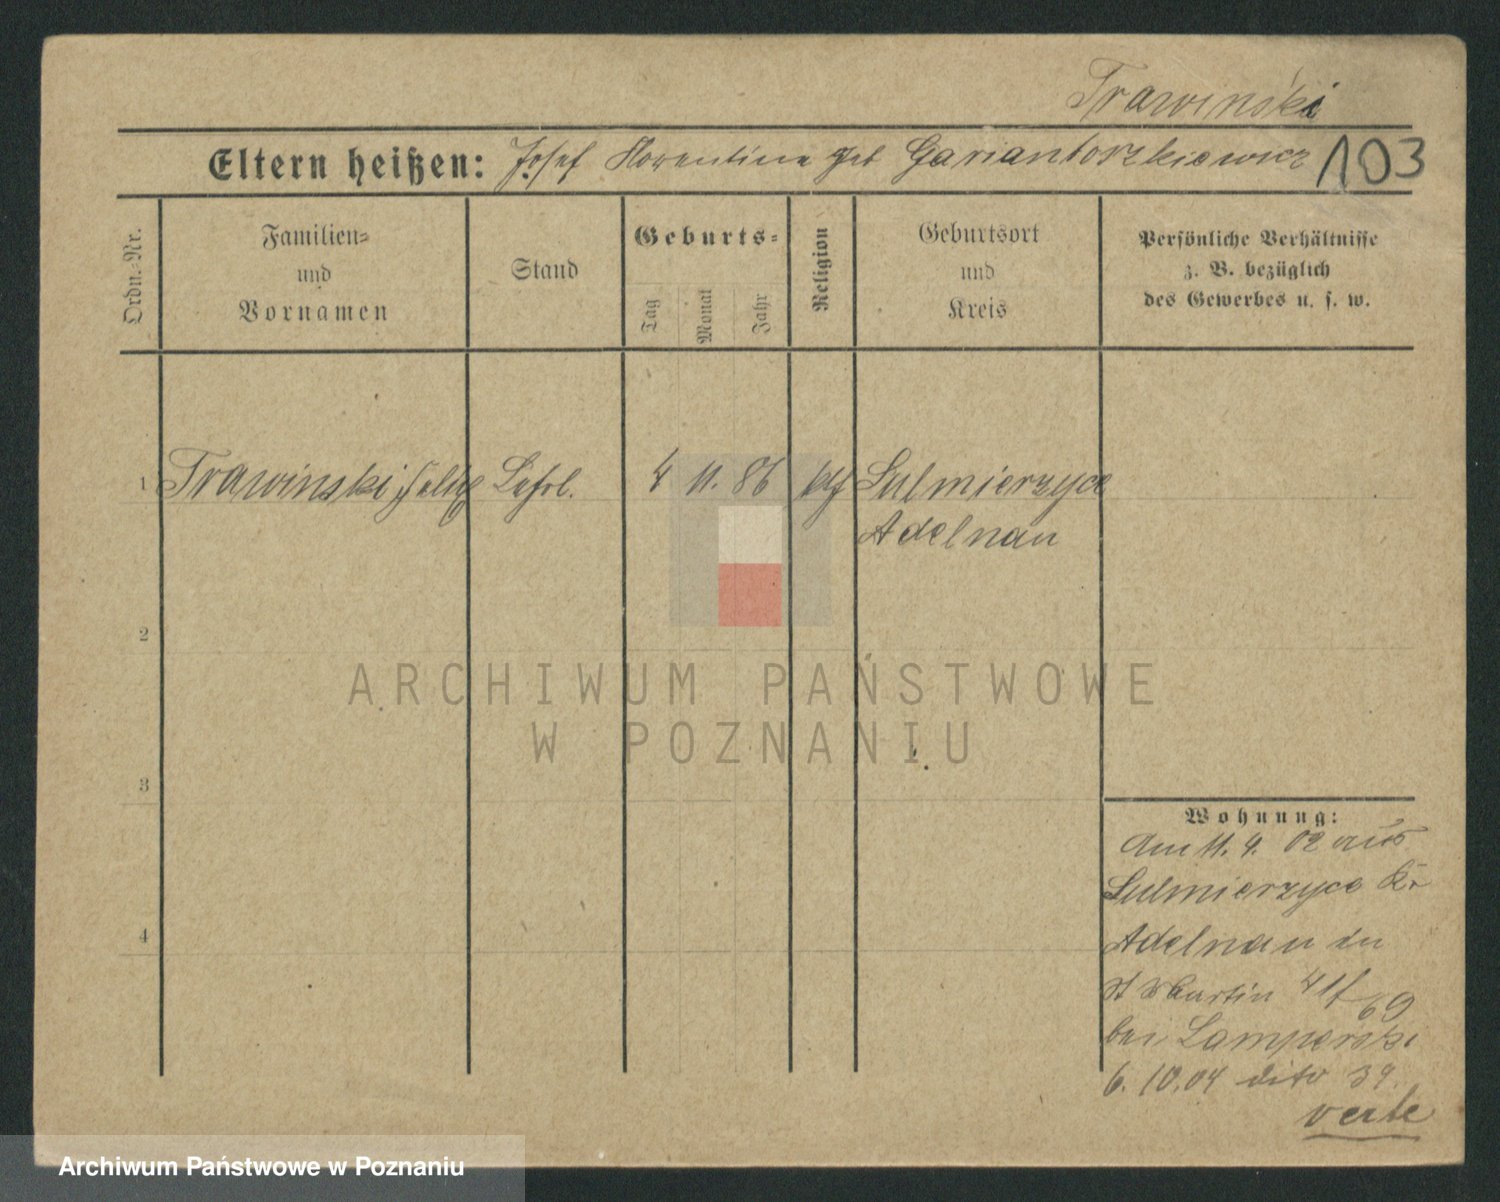 Trawiński
Eltern heißen: Josef Florentine geb Gariantorzkiewicz 103
Ordn.-Nr.
Familien-
und
Vornamen
Stand
Geburts-
Tag
Monat
Jahr
Religion
Geburtsort
und
Kreis
Persönliche Verhältnisse
z. B. bezüglich
des Gewerbes u. s. w.
1 Trawinski Felix Lehrl. 4 11. 86 kth Sulmierzyce
Adelnau
2
3
4
ARCHIWUM PAŃSTWOWE
W POZNANIU
Wohnung:
Am 11. 4. 02 aus
Sulmierzyce Kr
Adelnau in
St Martin 69
bei Lamperski
6. 10. 04 dito 39.
verte
Archiwum Państwowe w Poznaniu